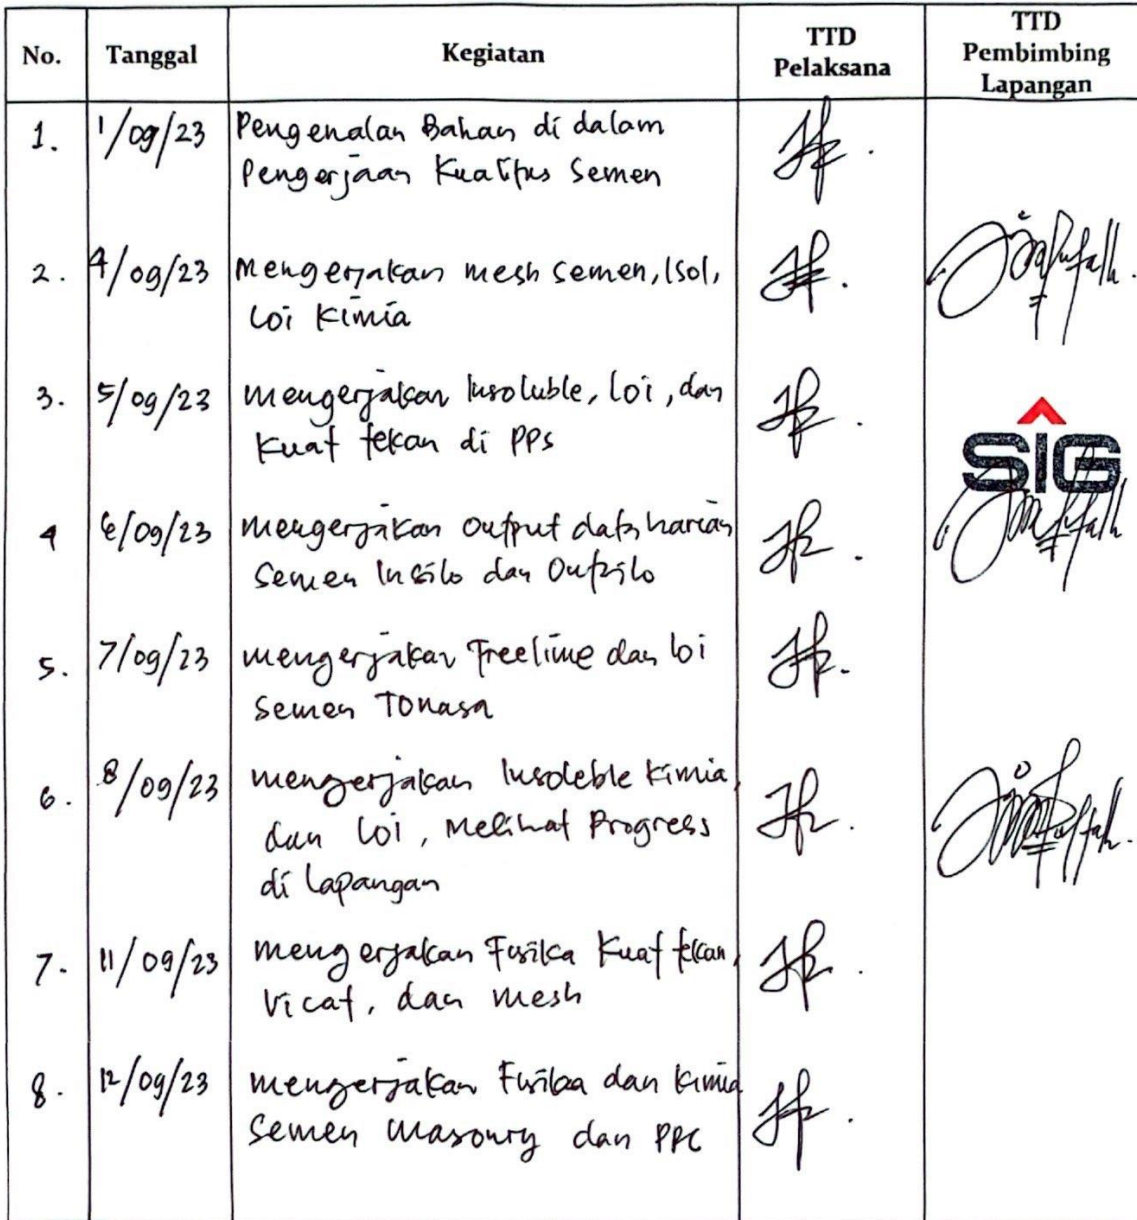 No. Tanggal Kegiatan TTD Pelaksana TTD Pembimbing Lapangan
1. 1/09/23 Pengenalan Bahan di dalam
Pengerjaan Kualitas Semen
2. 4/09/23 Mengerjakan mesh semen, Isol,
Loi Kimia
3. 5/09/23 mengerjakan Insoluble, loi, dan
Kuat tekan di PPs
4 6/09/23 mengerjakan Output data harian
Semen Insilo dan Outsilo
SIG
5. 7/09/23 mengerjakan Freelime dan loi
Semen Tonasa
6. 8/09/23 mengerjakan Insoleble Kimia,
dan loi, Melihat Progress
di Lapangan
7. 11/09/23 mengerjakan Fisika Kuat tekan,
Vicat, dan mesh
8. 12/09/23 mengerjakan Fisika dan Kimia
Semen Masonry dan PPC